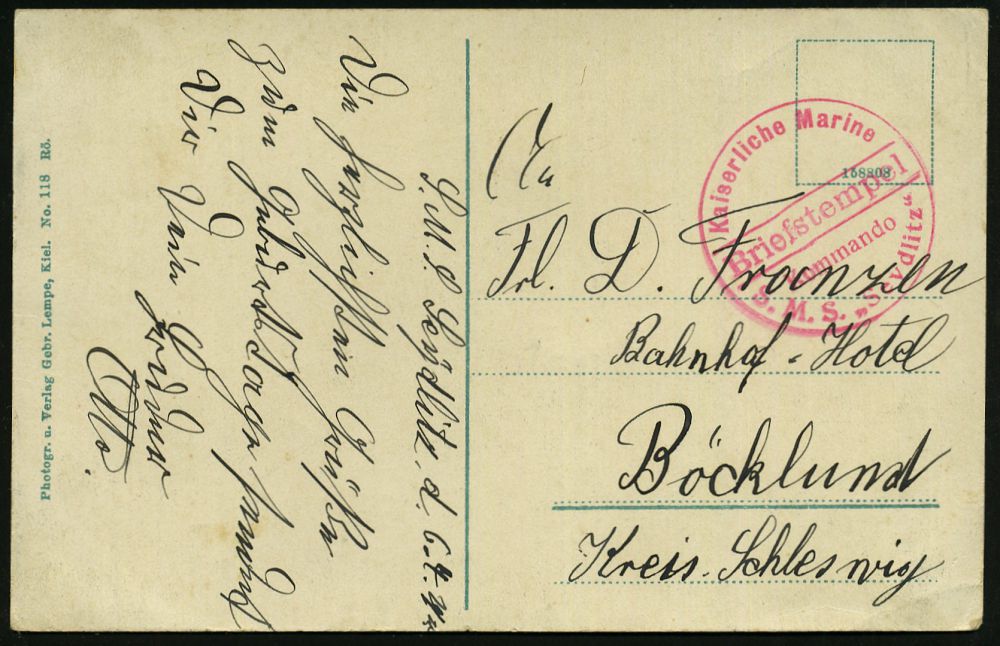 S.M.S. Seydlitz. d. 6.
Die herzlichsten Grüßen
zum Geburtstage sendet
Dir Dein Bruder
Otto.
An
Frl. D. Franzen
Bahnhof-Hotel
Böcklund
Kreis. Schleswig
Kaiserliche Marine
Briefstempel
Kommando
S. M. S. „Seydlitz"
168808
Photogr. u. Verlag Gebr. Lempe, Kiel. No. 118 Rö.